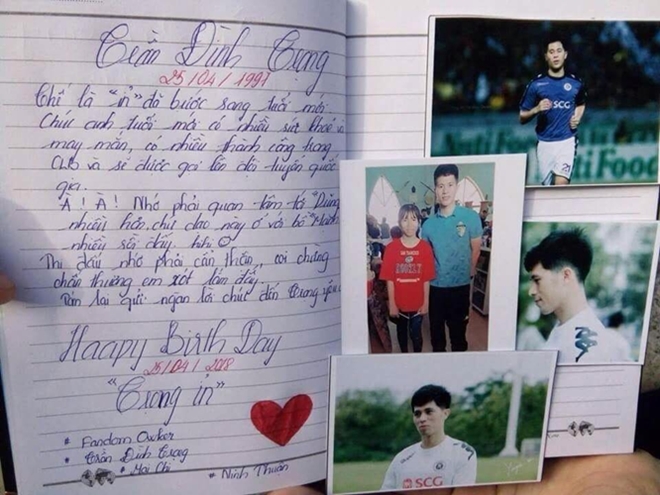 Trần Đình Trọng
25/04/1997
Thế là "ỉn" đã bước sang tuổi mới
Chúc anh tuổi mới có nhiều sức khoẻ và
may mắn, có nhiều thành công trong
CLB và sẽ được gọi lên đội tuyển quốc
gia.
À! À! Nhớ phải quan tâm tới "Dũng
nhiều hơn chứ dạo này ở với bồ
nhiều đấy hihi
Thi đấu nhớ phải cẩn thận, coi chừng
chấn thương em xót lắm đấy.
Tóm lại gửi ngàn lời chúc đến Trọng
Haapy Birth Day
25/04/2018
"Trọng ỉn"
* Fandom Owker
* Trần Đình Trọng
* Mai Chi
* Ninh Thuận
SCG
29
Anti Food
SCG